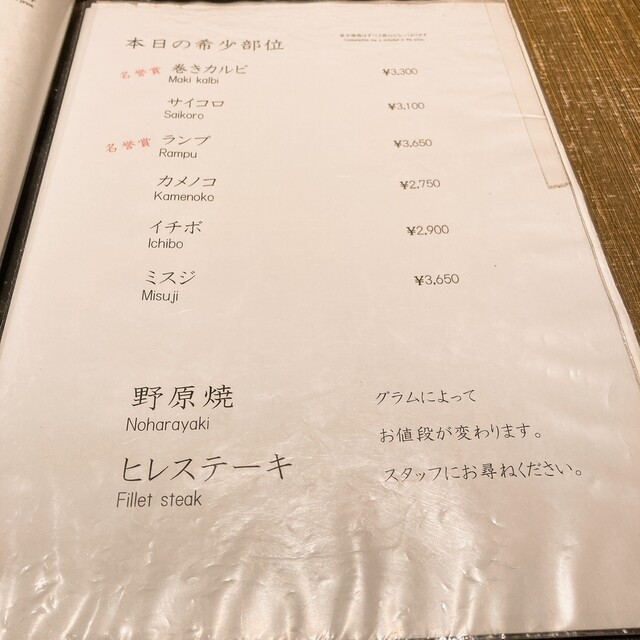 本日の希少部位
名誉賞 巻きカルビ ¥3,300
Maki kalbi
サイコロ ¥3,100
Saikoro
名誉賞 ランプ ¥3,650
Rampu
カメノコ ¥2,750
Kamenoko
イチボ ¥2,900
Ichibo
ミスジ ¥3,650
Misuji
野原焼
Noharayaki
ヒレステーキ
Fillet steak
グラムによって
お値段が変わります。
スタッフにお尋ねください。